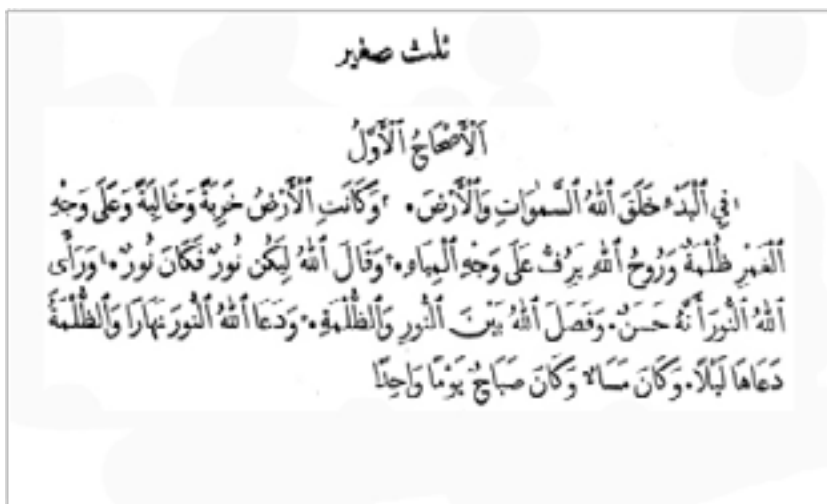 ثلث صغير
اَلْأَصْحَاحُ ٱلْأَوَّلُ
١فِي ٱلْبَدْءِ خَلَقَ ٱللهُ ٱلسَّمٰوَاتِ وَٱلْأَرْضَ. ٢وَكَانَتِ ٱلْأَرْضُ خَرِبَةً وَخَالِيَةً وَعَلَى وَجْهِ
ٱلْغَمْرِ ظُلْمَةٌ وَرُوحُ ٱللهِ يَرُفُّ عَلَى وَجْهِ ٱلْمِيَاهِ. ٣وَقَالَ ٱللهُ لِيَكُنْ نُورٌ فَكَانَ نُورٌ. ٤وَرَأَى
ٱللهُ ٱلنُّورَ أَنَّهُ حَسَنٌ. وَفَصَلَ ٱللهُ بَيْنَ ٱلنُّورِ وَٱلظُّلْمَةِ. ٥وَدَعَا ٱللهُ ٱلنُّورَ نَهَارًا وَٱلظُّلْمَةُ
دَعَاهَا لَيْلًا. وَكَانَ مَسَاءٌ وَكَانَ صَبَاحٌ يَوْمًا وَاحِدًا